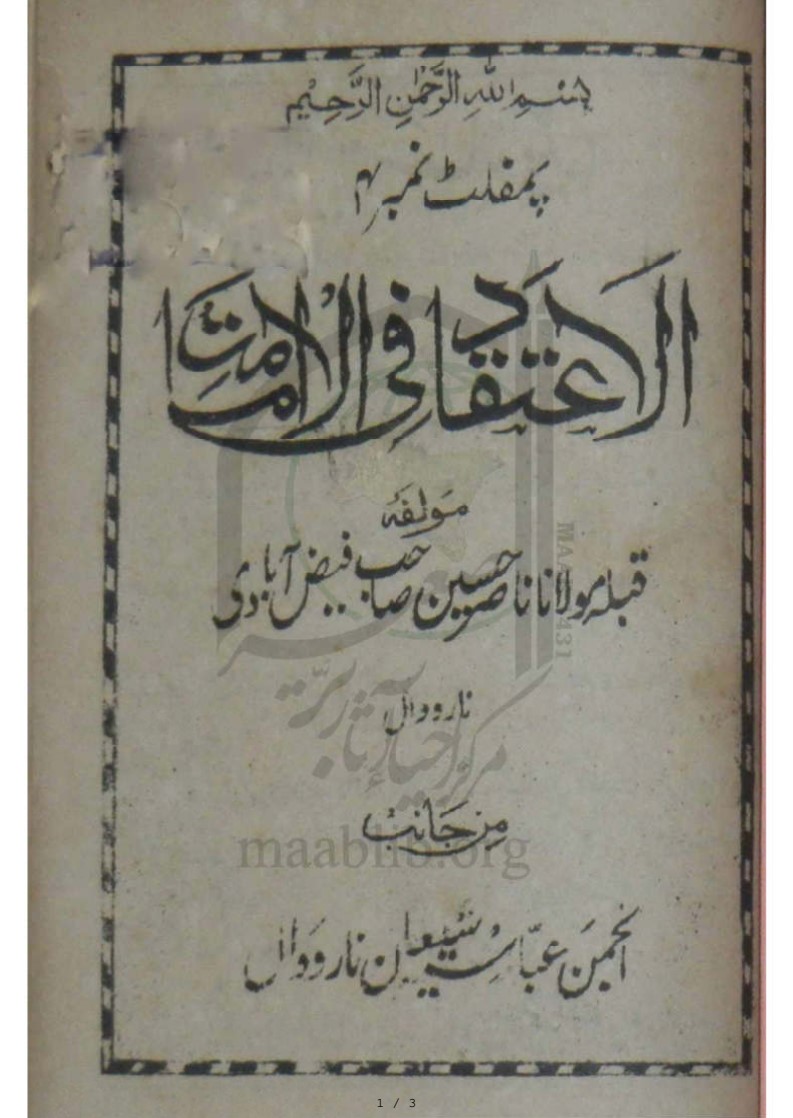 بِسْمِ اللهِ الرَّحْمٰنِ الرَّحِیْمِ
پمفلٹ نمبر ۴
الاعتقاد فی الامامت
مؤلفہ
قبلہ مولانا ناصر حسین صاحب فیض آبادی
نارووال
مِن جَانِب
انجمن عباسیہ شیعیان نارووال
مرکز احیاء آثار برّ
maablib.org
1 / 3